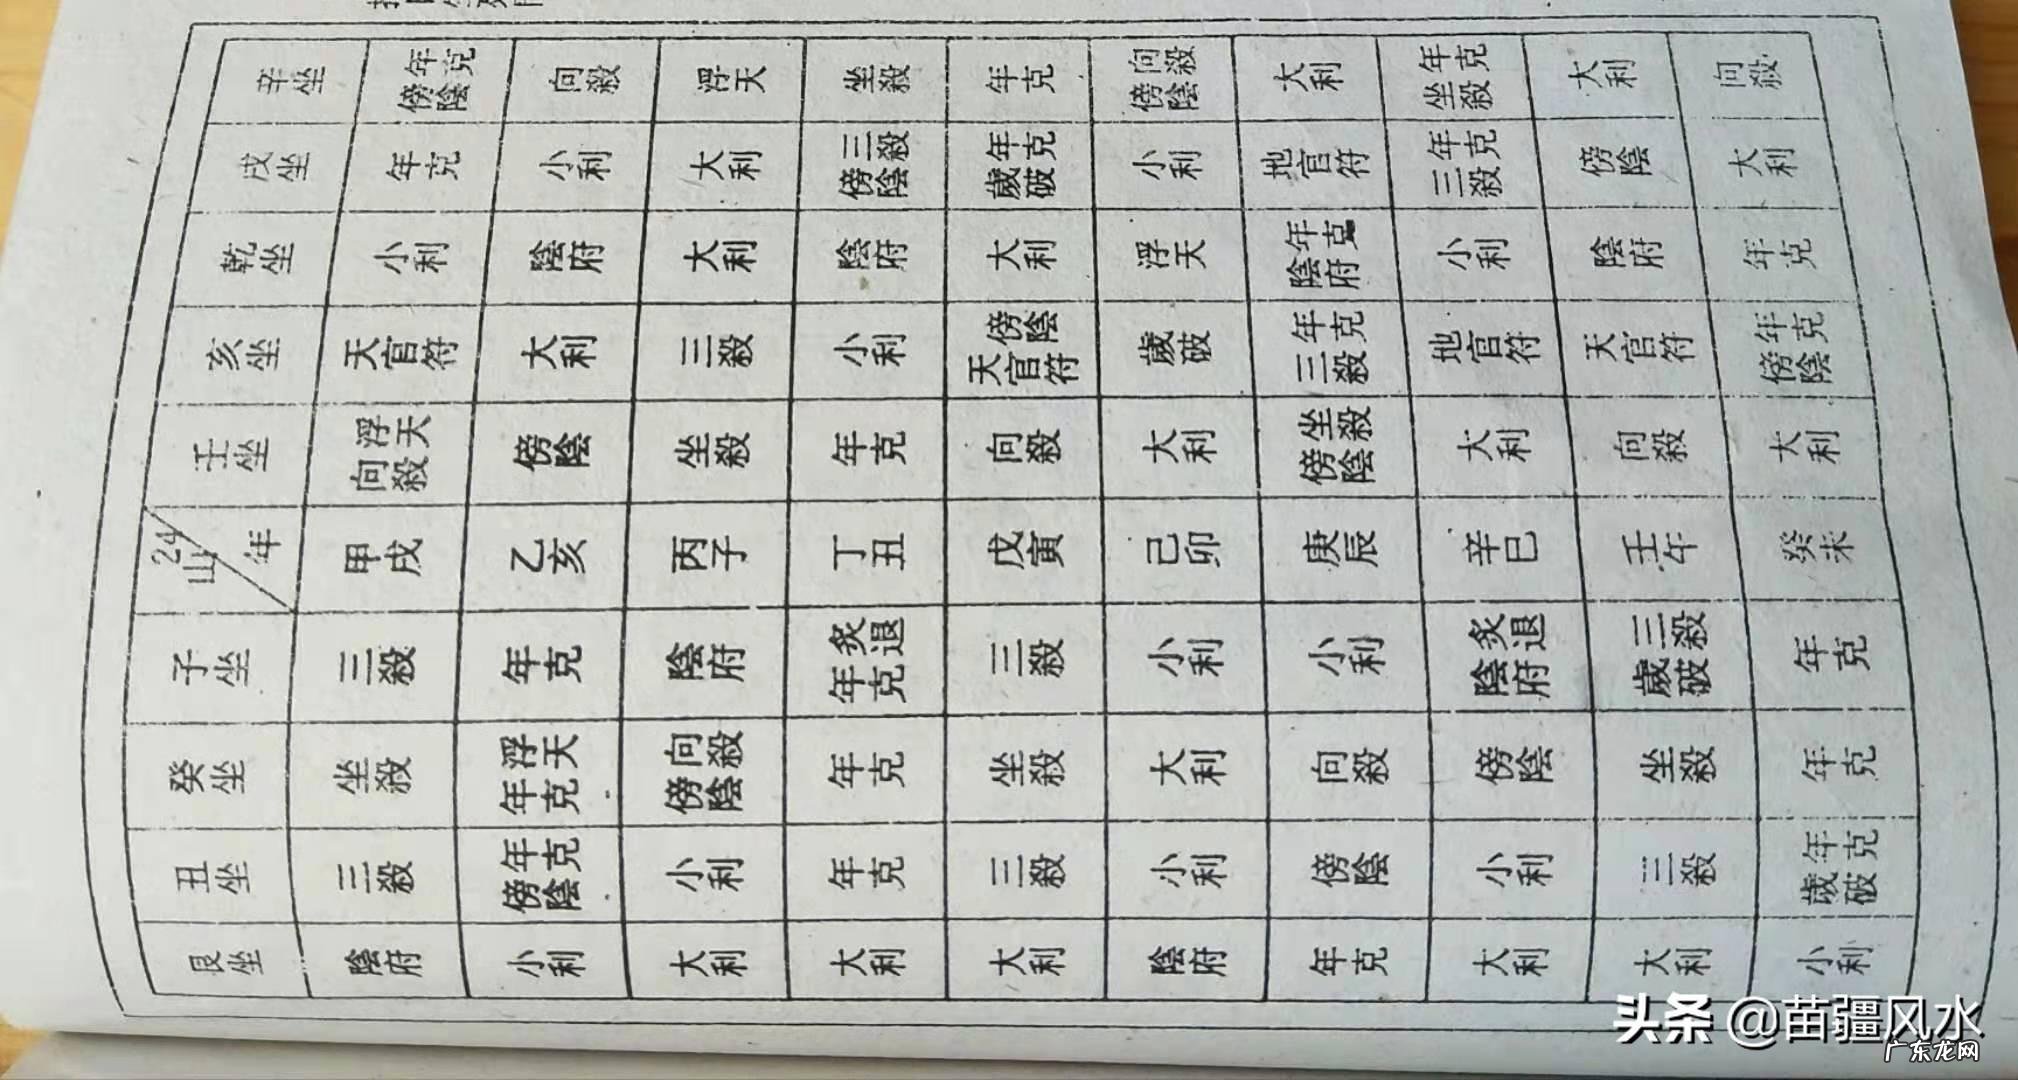 艮坐 丑坐 癸坐 子坐 24山/年 壬坐 亥坐 乾坐 戌坐 辛坐
陰府 三殺 坐殺 三殺 甲戌 向殺浮天 天官符 小利 年克 傍陰年克
小利 傍陰年克 年克浮天 年克 乙亥 傍陰 大利 陰府 小利 向殺
大利 小利 傍陰向殺 陰府 丙子 坐殺 三殺 大利 大利 浮天
大利 年克 年克 年克炙退 丁丑 年克 小利 陰府 傍陰三殺 坐殺
大利 三殺 坐殺 三殺 戊寅 向殺 天官符傍陰 大利 歲破年克 年克
陰府 小利 大利 小利 己卯 大利 歲破 浮天 小利 傍陰向殺
年克 傍陰 向殺 小利 庚辰 傍陰坐殺 三殺年克 陰府年克 地官符 大利
大利 小利 傍陰 陰府炙退 辛巳 大利 地官符 小利 三殺年克 坐殺年克
大利 三殺 坐殺 歲破三殺 壬午 向殺 天官符 陰府 傍陰 大利
小利 歲破年克 年克 年克 癸未 大利 傍陰年克 年克 大利 向殺
头条 @苗疆风水
广东龙网